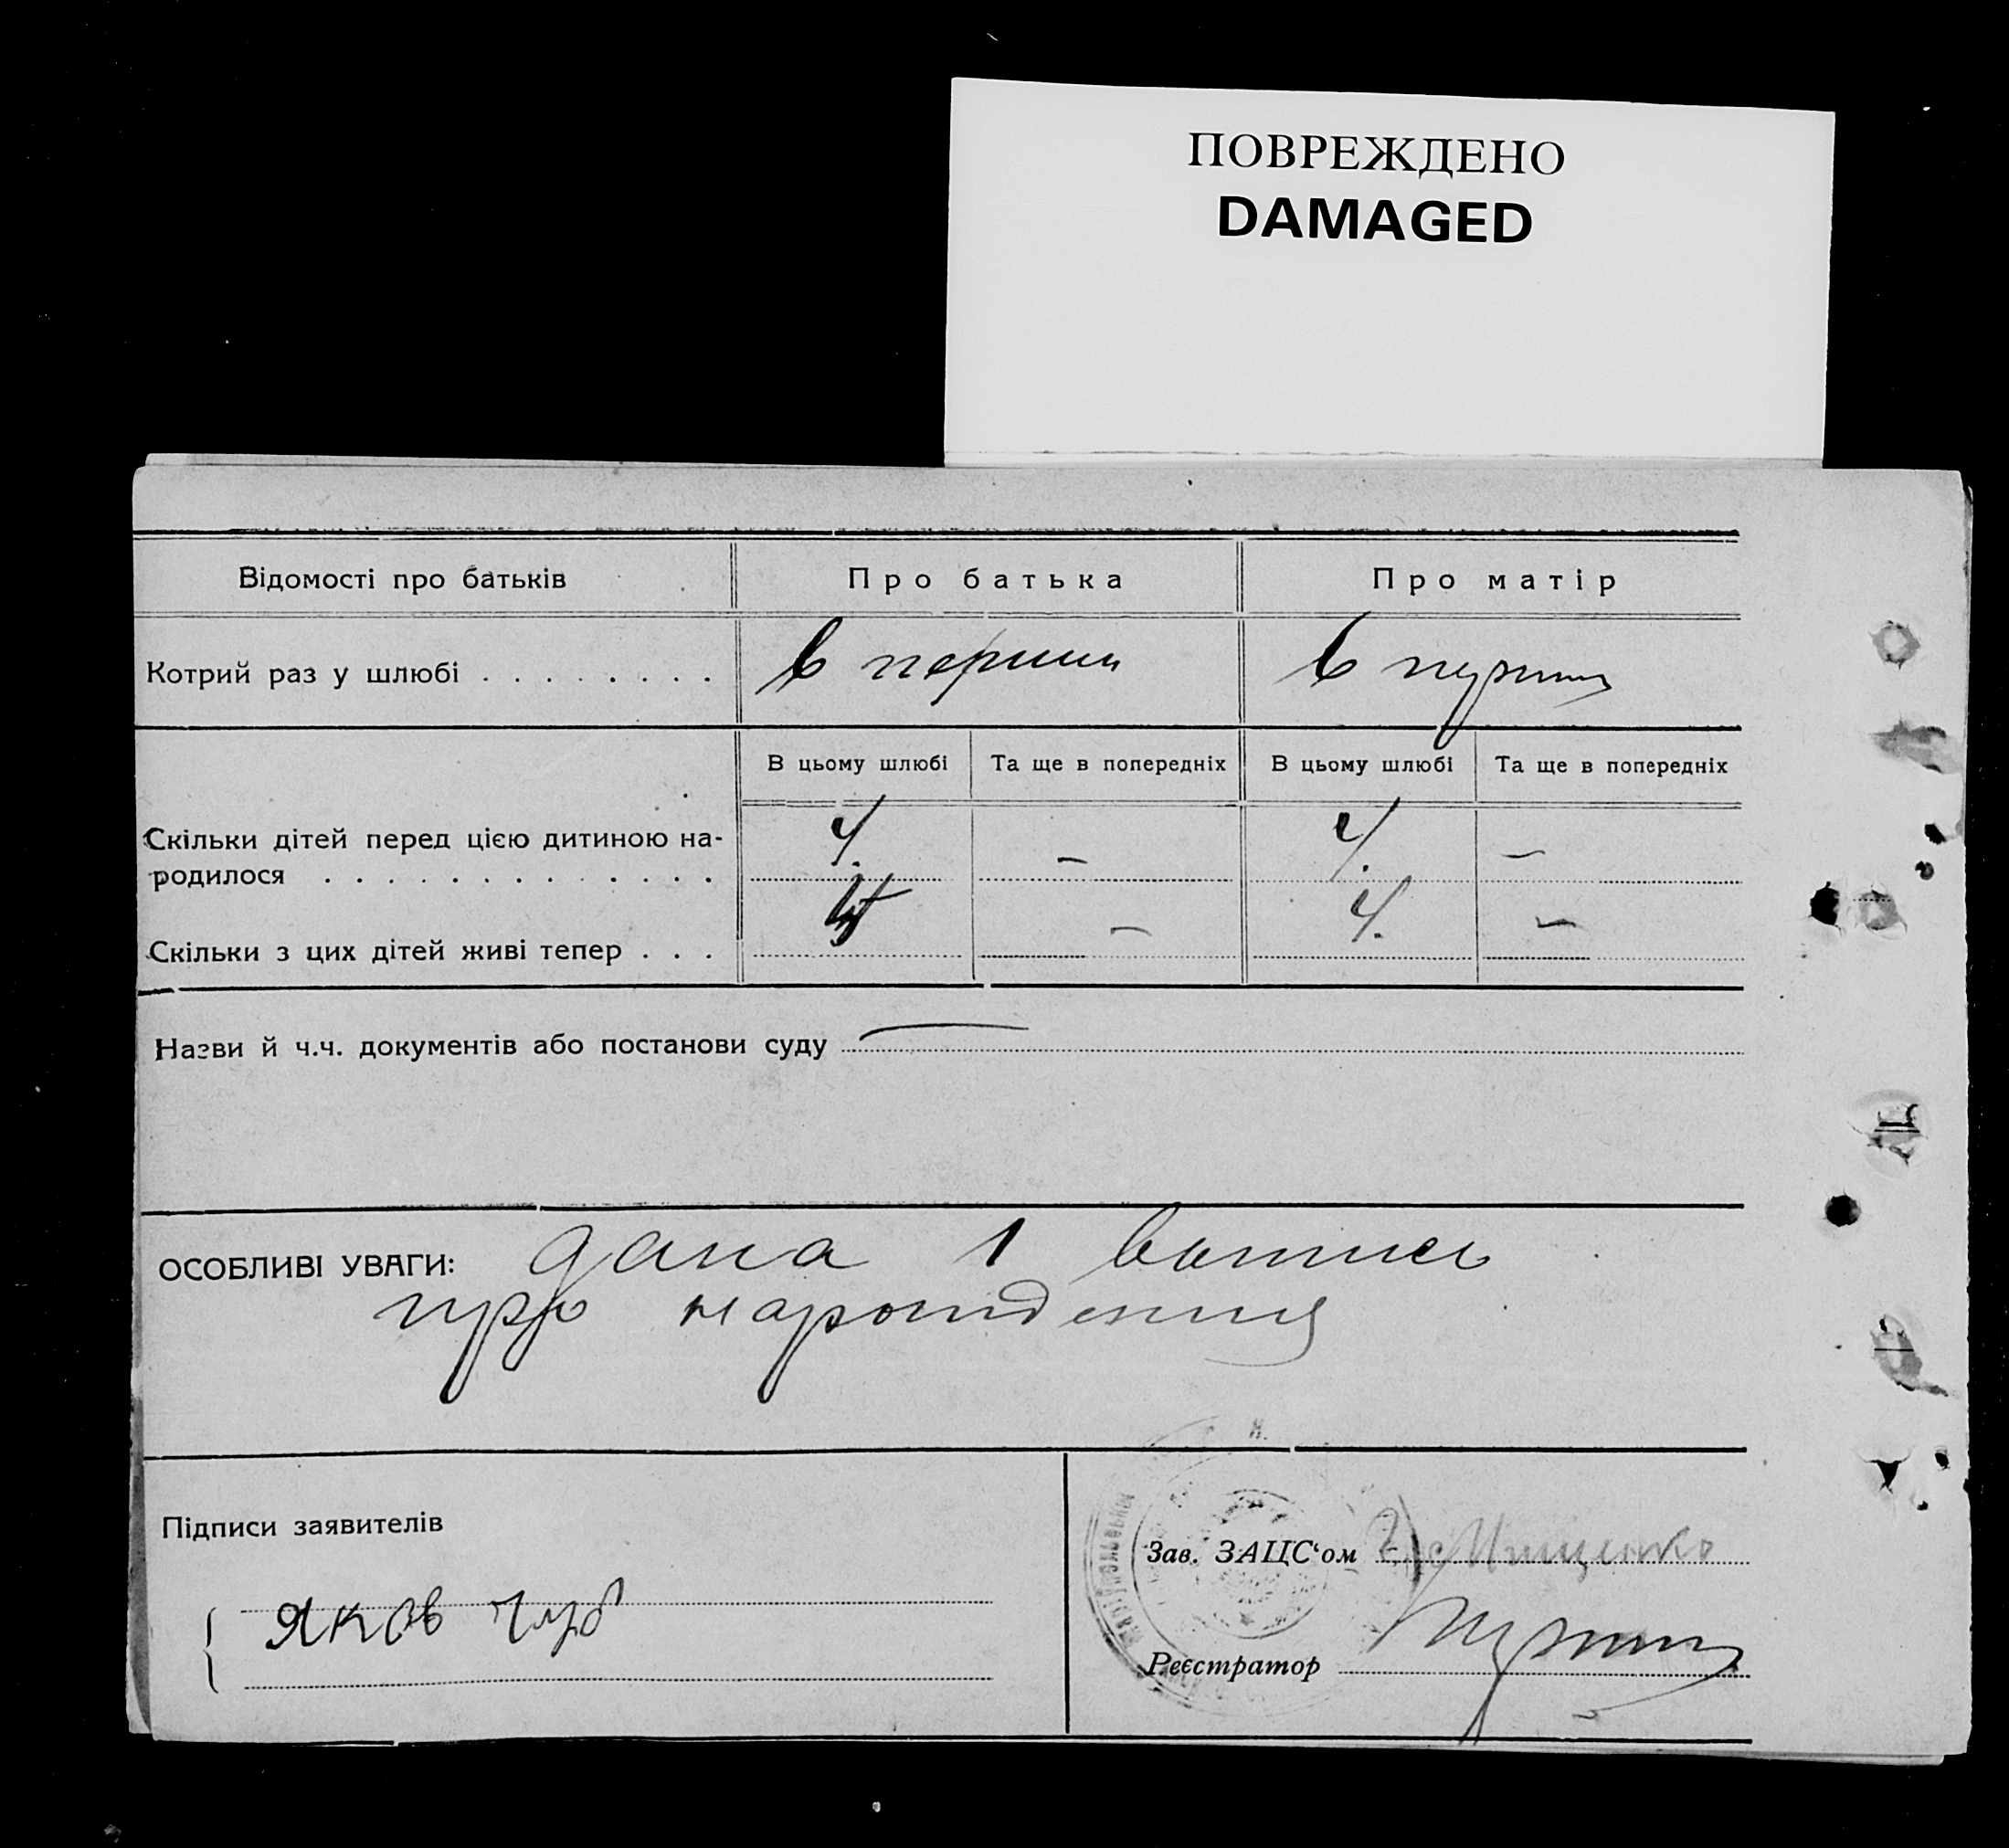 ПОВРЕЖДЕНО
DAMAGED
Відомості про батьків
Про батька
Про матір
Котрий раз у шлюбі . . . . . . . .
в перши
в перши
В цьому шлюбі
Та ще в попередніх
В цьому шлюбі
Та ще в попередніх
Скільки дітей перед цією дитиною на-
родилося . . . . . . . . . . . . .
4.
–
4.
–
Скільки з цих дітей живі тепер . . .
4
–
4.
–
Назви й ч.ч. документів або постанови суду —
ОСОБЛИВІ УВАГИ: дана 1 випись
про народження
Підписи заявителів
Яков Чуб
Зав. ЗАЦС'ом
Реєстратор